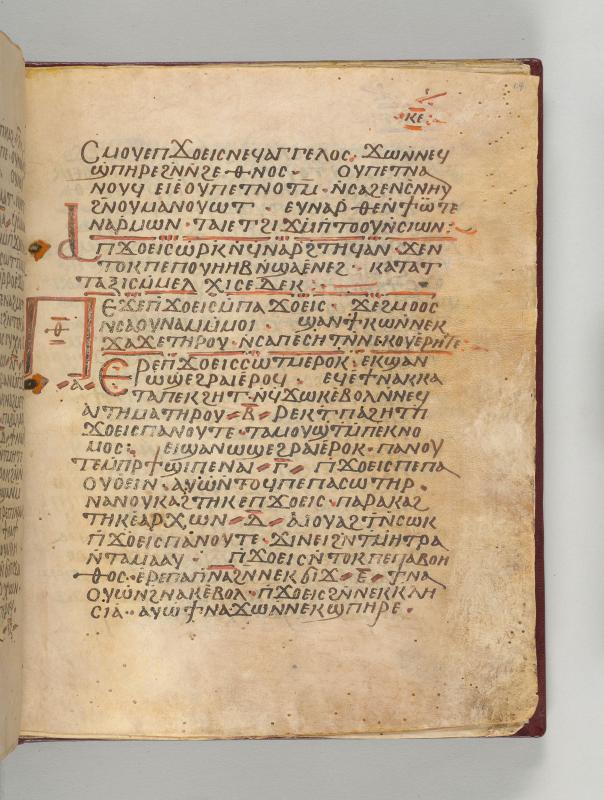 ⲕⲉ
Ⲥⲙⲟⲩⲉⲡϫⲟⲉⲓⲥⲛⲉϥⲁⲅⲅⲉⲗⲟⲥ · ϫⲱⲛⲛⲉϥ
ϣⲡⲏⲣⲉϩⲛⲛϩⲉⲑⲛⲟⲥ · ⲟⲩⲡⲉⲧⲛⲁ
ⲛⲟⲩϥ ⲉⲓⲉⲟⲩⲡⲉⲧⲛⲟⲧⲙ · ⲛⲥⲁϩⲉⲛⲥⲛⲏⲩ
ϩⲛⲟⲩⲙⲁⲛⲟⲩⲱⲧ · ⲉⲩⲛⲁⲣ
ⲛⲁⲣⲙⲱⲛ · ⲧⲁⲓⲉⲧϩⲓϫⲙⲡⲧⲟⲟⲩⲛⲥⲓⲱⲛ :
ⲡϫⲟⲉⲓⲥⲱⲣⲕⲛϥⲛⲁⲣϩⲧⲏϥⲁⲛ · ϫⲉⲛ
ⲧⲟⲕⲡⲉⲡⲟⲩⲏⲏⲃⲛϣⲁⲉⲛⲉϩ · ⲕⲁⲧⲁⲧ
ⲧⲁⲝⲓⲥⲙⲙⲉⲗ ϫⲓⲥⲉⲇⲉⲕ :
Ⲡⲉϫⲉⲡϫⲟⲉⲓⲥⲙⲡⲁϫⲟⲉⲓⲥ · ϫⲉϩⲙⲟⲟⲥ
ⲑ ⲛⲥⲁⲟⲩⲛⲁⲙⲙⲙⲟⲓ · ϣⲁⲛϯⲕⲱⲛⲛⲉⲕ
ϫⲁϫⲉⲧⲏⲣⲟⲩ · ⲛⲥⲁⲡⲉⲥⲏⲧⲛⲛⲉⲕⲟⲩⲉⲣⲏⲧⲉ
ⲁ Ⲉⲣⲉⲡϫⲟⲉⲓⲥⲥⲱⲧⲙⲉⲣⲟⲕ · ⲉⲕϣⲁⲛ
ⲣⲱϣⲉϩⲣⲁⲓⲉⲣⲟϥ · ⲉϥⲉϯⲛⲁⲕⲕⲁ
ⲧⲁⲡⲉⲕϩⲏⲧ · ⲛϥϫⲱⲕⲉⲃⲟⲗⲛⲛⲉϥ
ⲁⲓⲧⲏⲙⲁⲧⲏⲣⲟⲩ · ⲃ · ⲣⲉⲕⲧⲡⲁϩⲏⲧⲡ
ϫⲟⲉⲓⲥⲡⲁⲛⲟⲩⲧⲉ · ⲧⲁⲙⲟⲩϣⲧⲙⲡⲉⲕⲛⲟ
ⲙⲟⲥ : ⲉⲓϣⲁⲛⲱϣⲉϩⲣⲁⲓⲉⲣⲟⲕ · ⲡⲁⲛⲟⲩ
ⲧⲉⲙⲡⲣϯϣⲓⲡⲉⲛⲁⲓ · ⲅ · ⲡϫⲟⲉⲓⲥⲡⲉⲡⲁ
ⲟⲩⲟⲉⲓⲛ · ⲁⲩⲱⲛⲧⲟϥⲡⲉⲡⲁⲥⲱⲧⲏⲣ ·
ⲛⲁⲛⲟⲩⲕⲁϩⲧⲏⲕⲉⲡϫⲟⲉⲓⲥ · ⲡⲁⲣⲁⲕⲁϩ
ⲧⲏⲕⲉⲁⲣⲭⲱⲛ · ⲇ · ⲁⲓⲟⲩⲁϩⲧⲛⲥⲱⲕ
ⲡϫⲟⲉⲓⲥⲡⲁⲛⲟⲩⲧⲉ · ϫⲓⲛⲉⲓϩⲛⲧⲙⲏⲧⲣⲁ
ⲛⲧⲁⲙⲁⲁⲩ · ⲡϫⲟⲉⲓⲥⲛⲧⲟⲕⲡⲉⲡⲁⲃⲟⲏ
ⲑⲟⲥ · ⲉⲣⲉⲡⲁⲡⲛⲁϩⲛⲛⲉⲕϭⲓϫ · ⲉ · ϯⲛⲁ
ⲟⲩⲱⲛϩⲛⲁⲕⲉⲃⲟⲗ · ⲡϫⲟⲉⲓⲥϩⲛⲛⲉⲕⲕⲗⲏ
ⲥⲓⲁ · ⲁⲩⲱϯⲛⲁϫⲱⲛⲛⲉⲕϣⲡⲏⲣⲉ ·